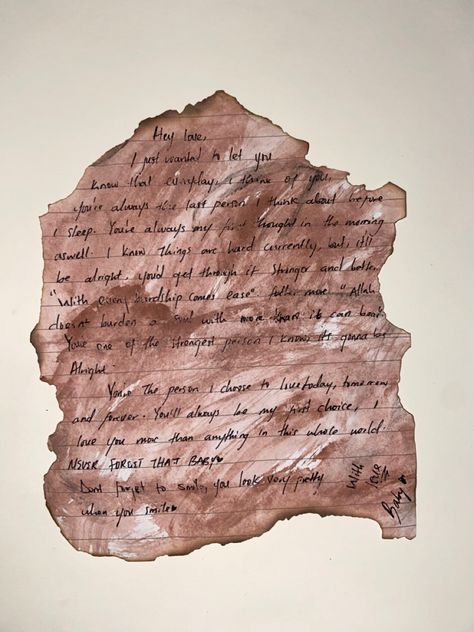 Hey love,
I just wanted to let you
know that everyday, i think of you,
you're always the last person i think about before
I sleep. You're always my first thought in the morning
aswell. I know things are hard currently, but, it'll
be alright, you'd get through it stronger and better.
"With every hardship comes ease" "Allah
doesn't burden a soul with more than it can bear"
You're one of the strongest person I know, it's gonna be
Alright.
You're the person I choose to love today, tomorrow
and forever. You'll always be my first choice, I
love you more than anything in this whole world.
NEVER FORGET THAT BABY♥
Dont forget to smile, you look very pretty
when you smile♥
With
love
Baby♥